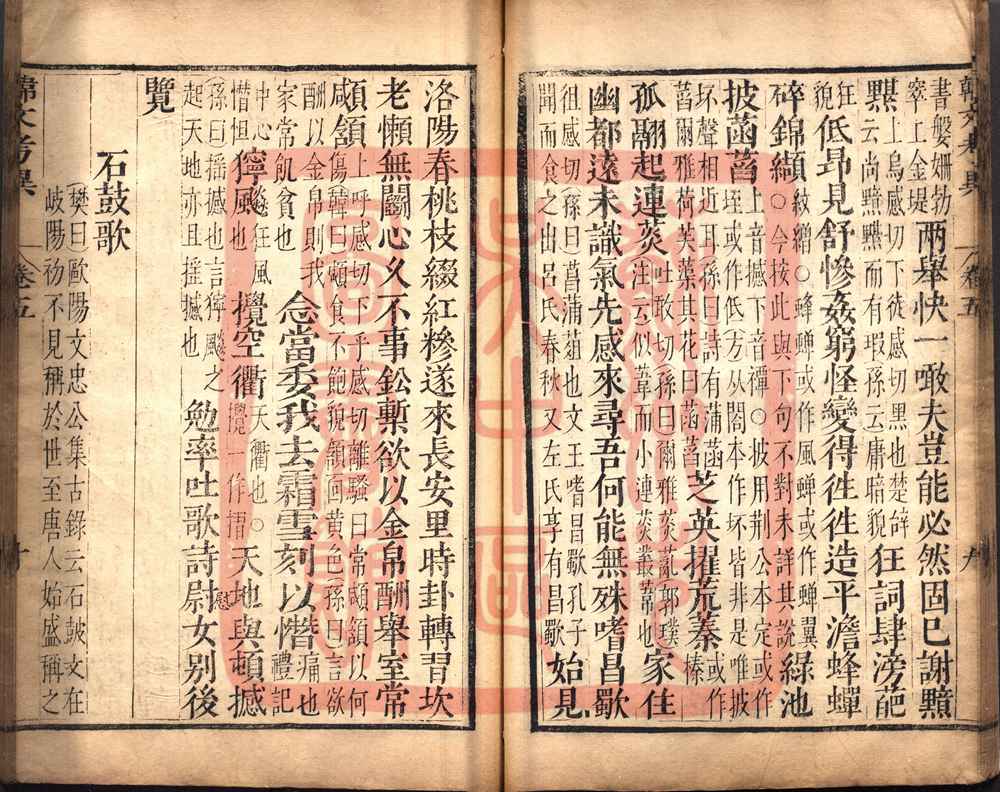 書嫛姍勃
窣上金堤
兩舉快一噉夫豈能必然固已謝黯
黮
上烏感切下徒感切黑也楚辭
云尚黯黮而有瑕孫云庸暗貌
狂詞肆滂葩
狂
貌
低昂見舒慘姦窮怪變得徃徃造平澹蜂蟬
碎錦纈
紋繒○蜂蟬或作風蟬或作蟬翼
○今按此與下句不對未詳其說
綠池
披菡萏
上音撼下音禫○披用荆公本定或作
垤或作低方从閣本作坏皆非是唯披
坏聲相近耳孫曰詩有蒲菡
萏爾雅荷芙蕖其花曰菡萏
芝英擢荒蓁
或作
榛
孤翮起連菼
吐敢切孫曰爾雅菼薍郭璞
注云似葦而小連菼叢䔿也
家住
幽都遠未識氣先感來尋吾何能無殊嗜昌歜
徂感切孫曰菖蒲葅也文王嗜昌歜孔子
聞而食之出呂氏春秋又左氏享有昌歜
始見
洛陽春桃枝綴紅糝遂來長安里時卦轉習坎
老懶無鬭心久不事鈆槧欲以金帛酬舉室常
顑頷
上呼感切下乎感切離騷曰常顑頷以何
傷韓曰顑食不飽貌頷面黃色孫曰言欲
酬以金帛則我
家常飢貧也
念當委我去霜雪刻以憯
痛也
禮記
中心
憯怛
獰飈
狂風
也
攪空衢
天衢也○
攪一作捂
天地與頓撼
孫曰揺撼也言獰飈之
起天地亦且揺撼也
勉率吐歌詩尉女別後
慰
覽
石鼓歌
樊曰歐陽文忠公集古錄云石鼓文在
岐陽礽不見稱於世至唐人始盛稱之
韓文考異
卷五
十
韓文考異
卷五
九